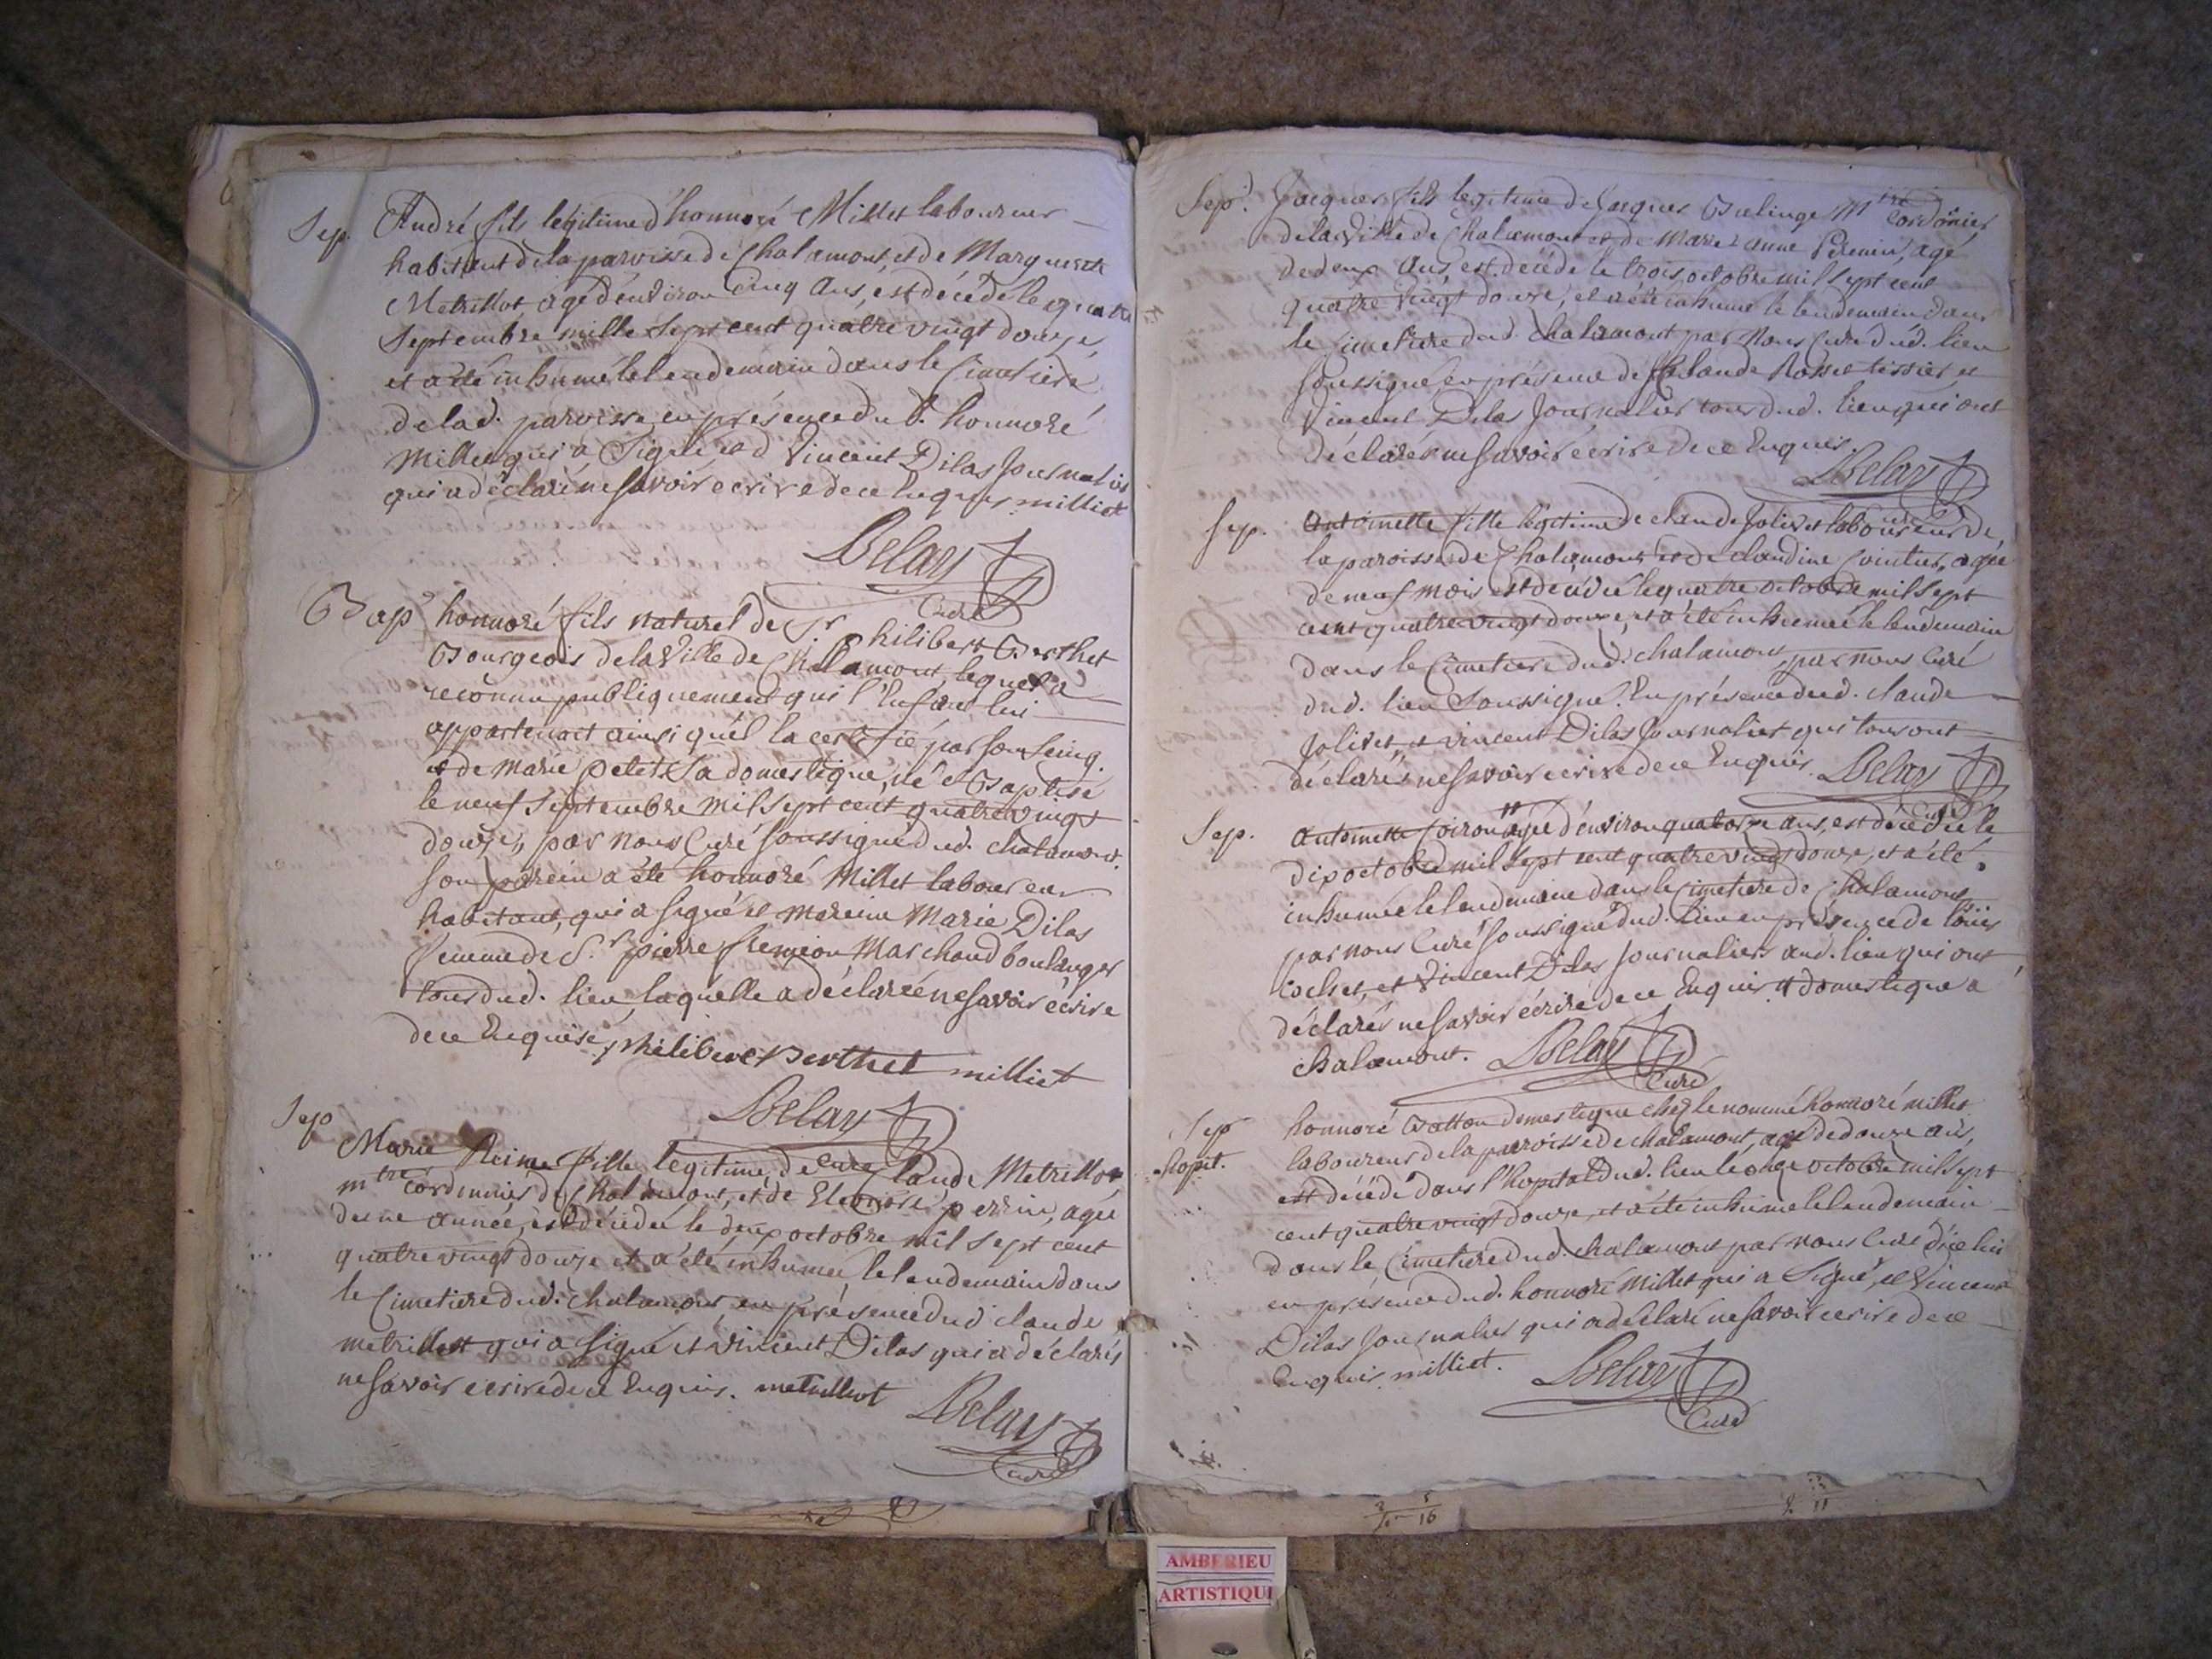 Sep. André fils légitime d'honnoré Millet laboureur
habitant de la parroisse de Chalamont, et de Marguerite
Metrillot, agé d'environ cinq ans, est décédé le quatre
Septembre mille sept cent quatre vingt douze,
et a été inhumé le lendemain dans le Cimetiere
de lad. parroisse, en présence dud. honnoré
Millet qui a signé et d Vincent Dilas Journalier
qui a déclaré ne savoir ecrire de ce Enquis. milliet
Belay
Curé
Bap. honnoré fils naturel de Sr. hilibert Berthet
Bourgeois de la Ville de Chalamont, lequel a
reconnu publiquement qui l'Enfant lui
appartenoit ainsi qu'el la certifié par son seing.
et de Marie petit sa domestique, né et Baptisé
le neuf septembre mil sept cent quatre vingt
douze, par nous Curé soussigné dud. chalamont.
son parein a été honnoré Millet laboureur
habitant, qui a signé et mareine Marie Dilas
femme de Sr. pierre fremion Marchand boulanger
tous dud. lieu, laquelle a déclaréé ne savoir écrire
de ce Enquise, philibert Berthet milliet
Belay
Curé
Sep Marie Reine fille légitime, de Claude Metrillot
mtre cordonnier de Chalamont, et de Eleonore perrin, agée
de une année, est décédée le deux octobre mil sept cent
quatre vingt douze et a été inhumée le lendemain dans
le Cimetiere dud. chalamont, en présence dud claude
metrillot qui a signé et vincent Dilas qui a déclarés
ne savoir ecrire de ce Enquis. metrilliot
Belay
Curé
Sep. Jacques fils legitime de Jacques Belinge Mtre Cordonier
de la Ville de Chalamont et de Marie anne Peremin, agé
de deux ans, est décédé le trois octobre mil sept cent
quatre vingt douze, et a été inhumé le lendemain dans
le Cimetiere dud. Chalamont par Nous Curé dud. lieu
soussigné, en présence de Claude Rosset tissier et
Vincent Dilas Journalier tous dud. lieu qui ont
déclarés ne savoir écrire de ce Enquis.
Belay
Sep. Antoinette fille légitime de claude Jolivet laboureur de
la paroisse de Chalamont et de claudine Cointier, agée
de neuf mois est décédée le quatre octobre mil sept
cent quatre vingt douze, et a été inhumée le lendemain
dans le Cimetiere dud. chalamont, par nous Curé
dud. lieu soussigné. En présence dud. claude
Jolivet, et vincent Dilas Journalier qui tous ont
déclarés ne savoir ecrire de ce Enquis. Belay
Curé
Sep. Antoinette Coiron # agée d'environ quatorze ans, est décédée le
dix octobre mil sept cent quatre vingt douze, et a été
inhumée le lendemain dans le Cimetiere de Chalamont,
par nous Curé soussigné dud. lieu en présence de loüis
Cochet, et Vincent Dilas Journaliers aud. lieu qui ont
déclarés ne savoir écrire de ce Enquis # domestique a
chalamont. Belay
Curé
Sep honnoré Batton domestique chez le nommé honnoré millet
hopit. laboureur de la paroisse de chalamont, agé de douze ans,
est décédé dans l'hopital dud. lieu le onze octobre mil sept
cent quatre vingt douze, et a été inhumé le lendemain
dans le Cimetiere dud. chalamont par nous Curé dicelui
en présence dud. honnoré Millet qui a signé, et Vincent
Dilas Journalier qui a declaré ne savoir ecrire de ce
Enquis. milliet. Belay
Curé
AMBERIEU
ARTISTIQUE